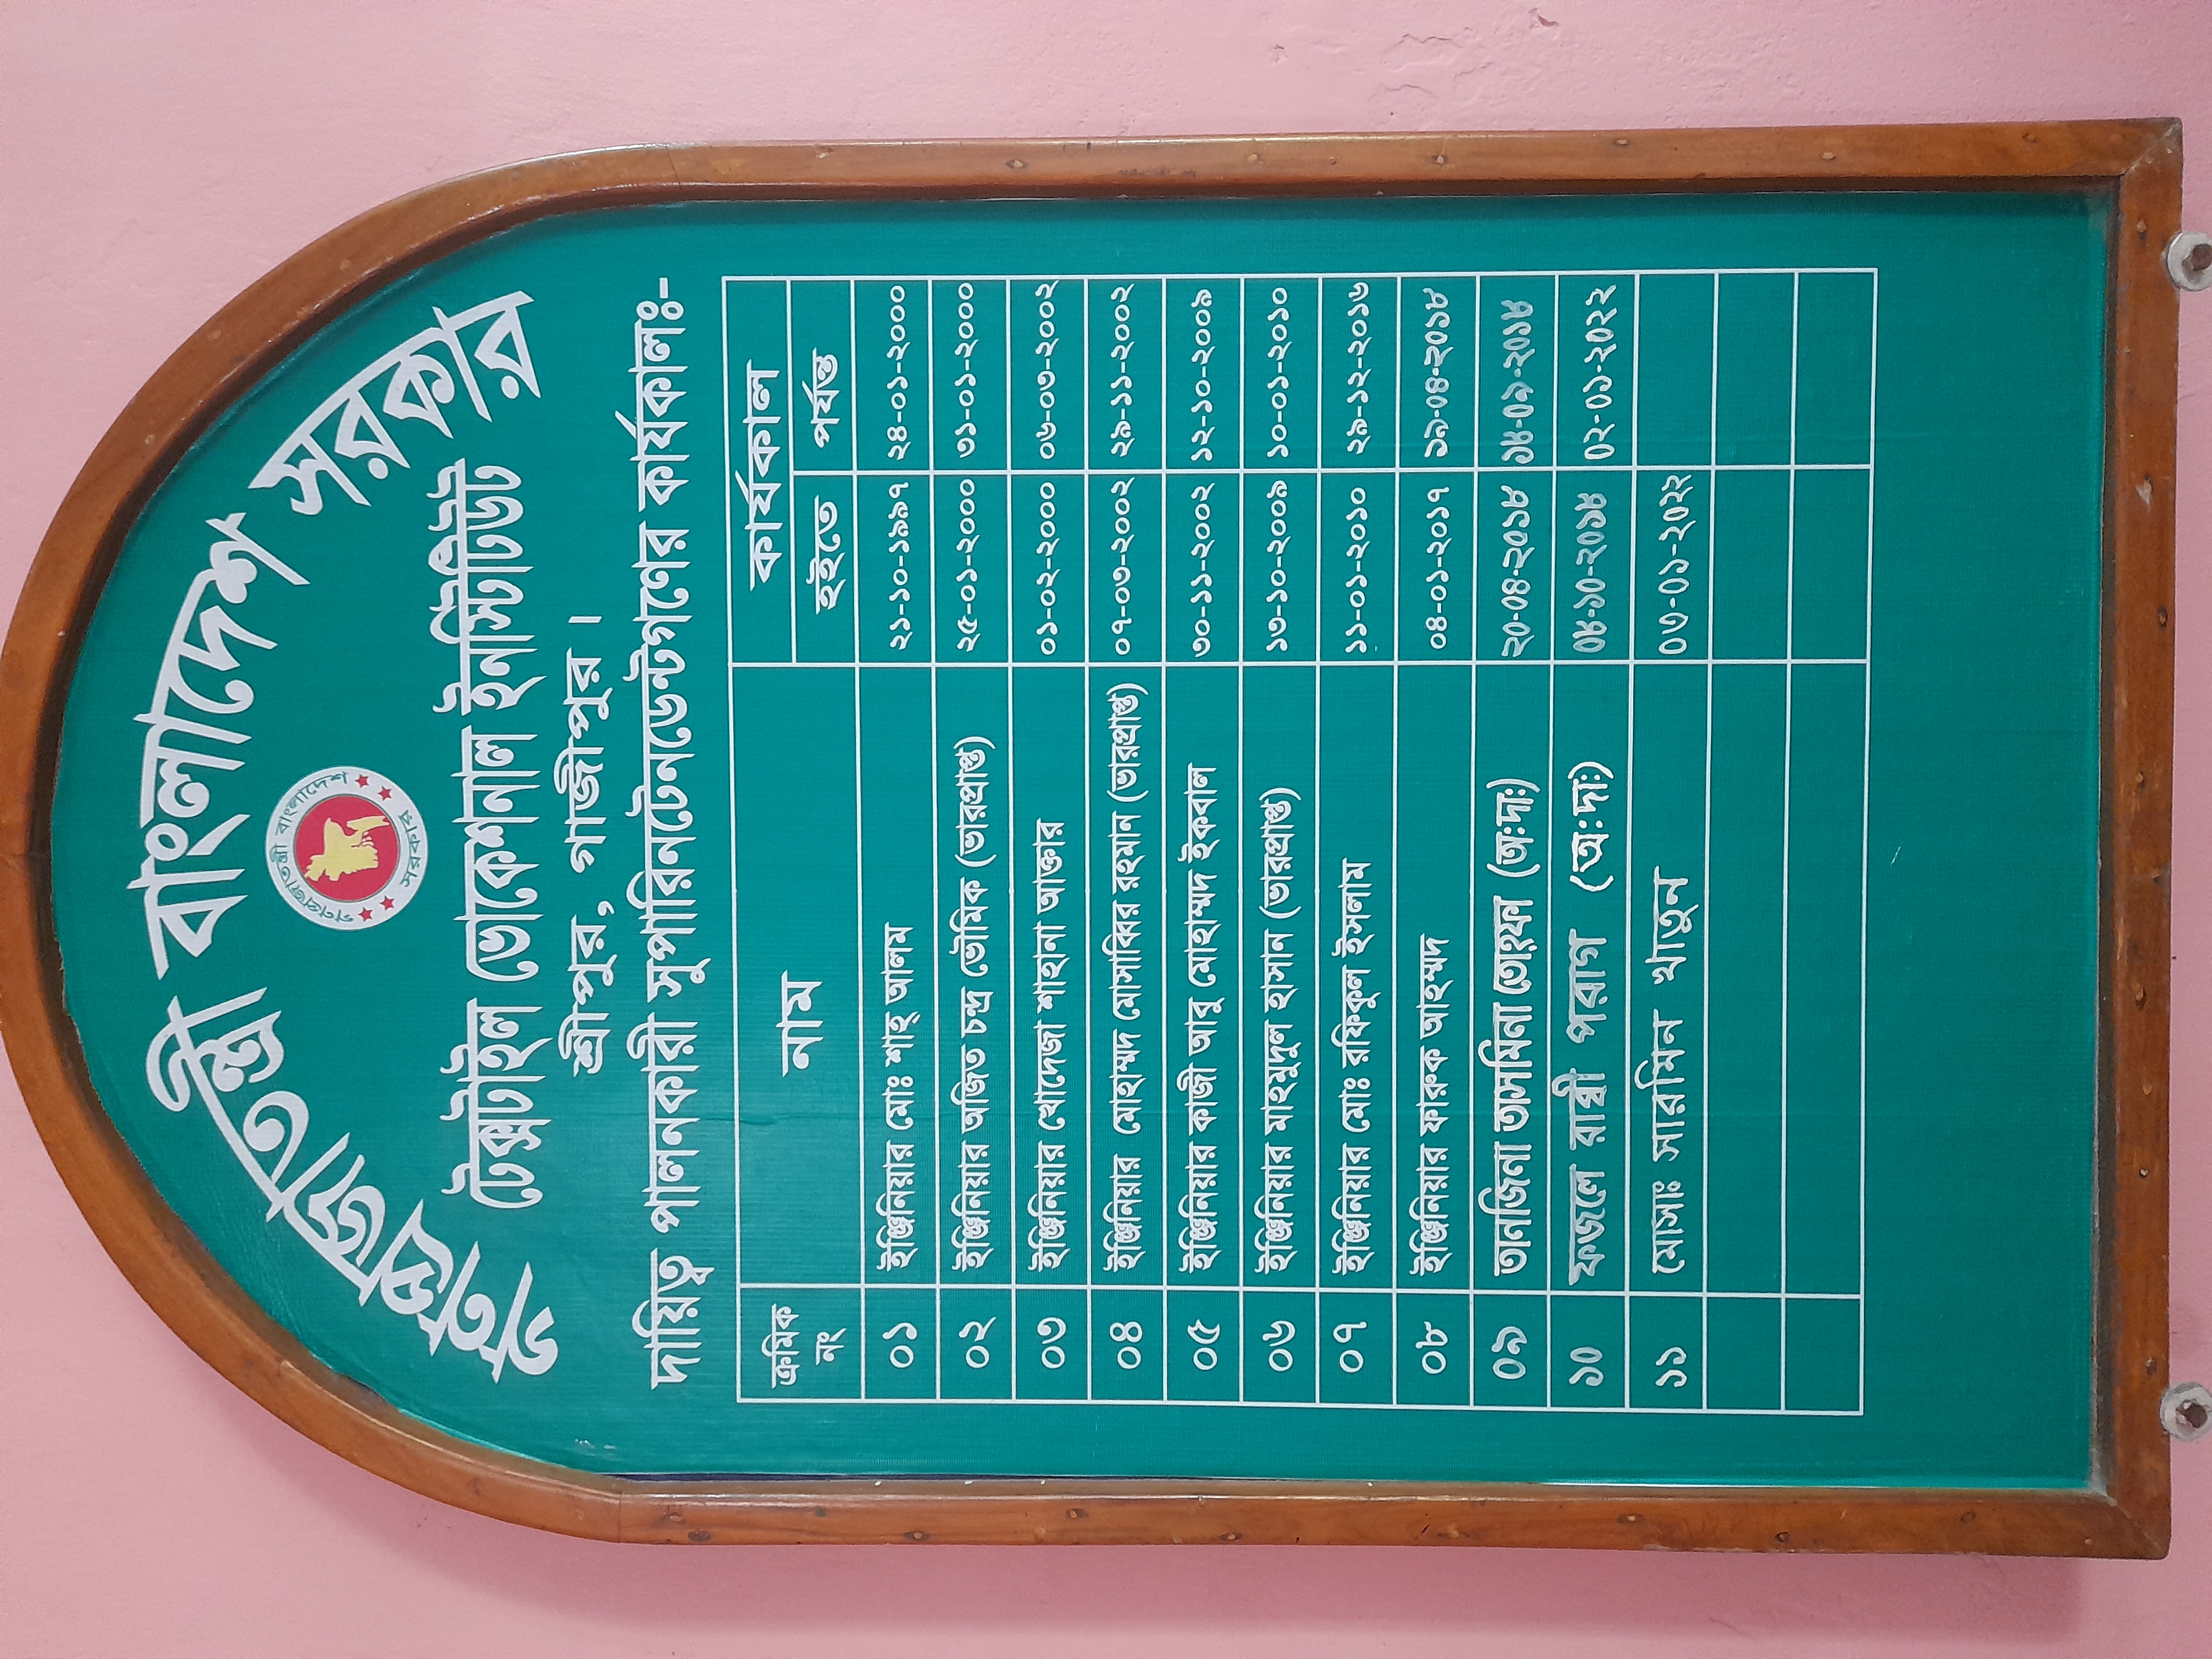 গণপ্রজাতন্ত্রী বাংলাদেশ সরকার
গণপ্রজাতন্ত্রী বাংলাদেশ
সরকার
টেক্সটাইল ভোকেশনাল ইনস্টিটিউট
শ্রীপুর, গাজীপুর।
দায়িত্ব পালনকারী সুপারিনটেনডেন্টগণের কার্যকালঃ-
ক্রমিক নং নাম কার্যকাল
হইতে পর্যন্ত
০১ ইঞ্জিনিয়ার মোঃ শাহ্ আলম ২১-১০-১৯৯৭ ২৪-০১-২০০০
০২ ইঞ্জিনিয়ার অজিত চন্দ্র ভৌমিক (ভারপ্রাপ্ত) ২৫-০১-২০০০ ৩১-০১-২০০০
০৩ ইঞ্জিনিয়ার খোদেজা শাহানা আক্তার ০১-০২-২০০০ ০৬-০৭-২০০২
০৪ ইঞ্জিনিয়ার মোহাম্মদ মোসাব্বির রহমান (ভারপ্রাপ্ত) ০৭-০৭-২০০২ ২৯-১১-২০০২
০৫ ইঞ্জিনিয়ার কাজী আবু মোহাম্মদ ইকবাল ৩০-১১-২০০২ ১২-১০-২০০৯
০৬ ইঞ্জিনিয়ার মাহমুদুল হাসান (ভারপ্রাপ্ত) ১৩-১০-২০০৯ ১০-০১-২০১০
০৭ ইঞ্জিনিয়ার মোঃ রফিকুল ইসলাম ১১-০১-২০১০ ২৯-১২-২০১৬
০৮ ইঞ্জিনিয়ার ফারুক আহম্মদ ০৪-০১-২০১৭ ১৯-০৪-২০১৮
০৯ তানজিনা তাসমিনা তোহফা (অ:দা:) ২০-০৪-২০১৮ ১৪-০৯-২০১৮
১০ ফজলে রাব্বী পরাগ (অ:দা:) ০৪-১০-২০১৮ ০২-০১-২০২২
১১ মোসাঃ সারমিন খাতুন ০৩-০১-২০২২